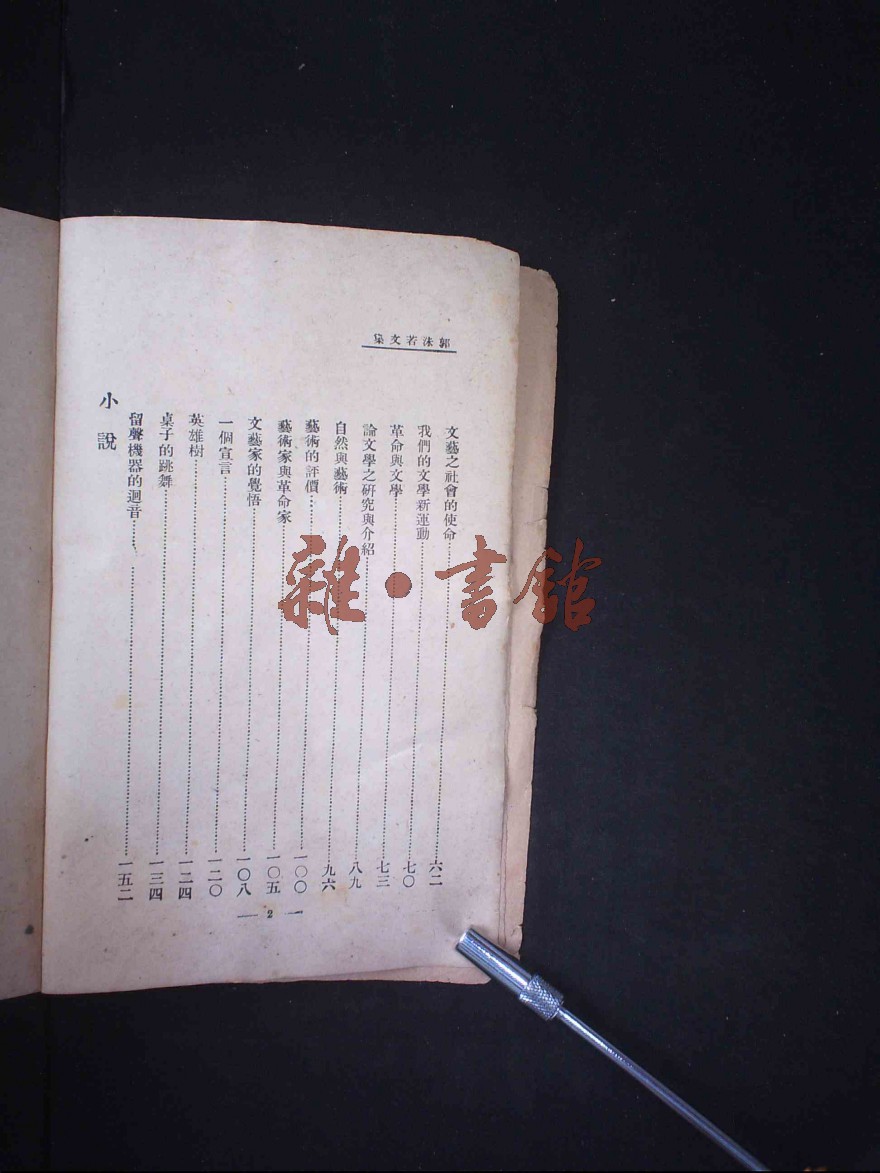 郭沫若文集
文藝之社會的使命……六二
我們的文學新運動……七〇
革命與文學……七三
論文學之研究與介紹……八九
自然與藝術……九六
藝術的評價……一〇〇
藝術家與革命家……一〇五
文藝家的覺悟……一〇八
一個宣言……一二〇
英雄樹……一二四
桌子的跳舞……一三四
留聲機器的迴音……一五二
小說
— 2 —
雜·書館